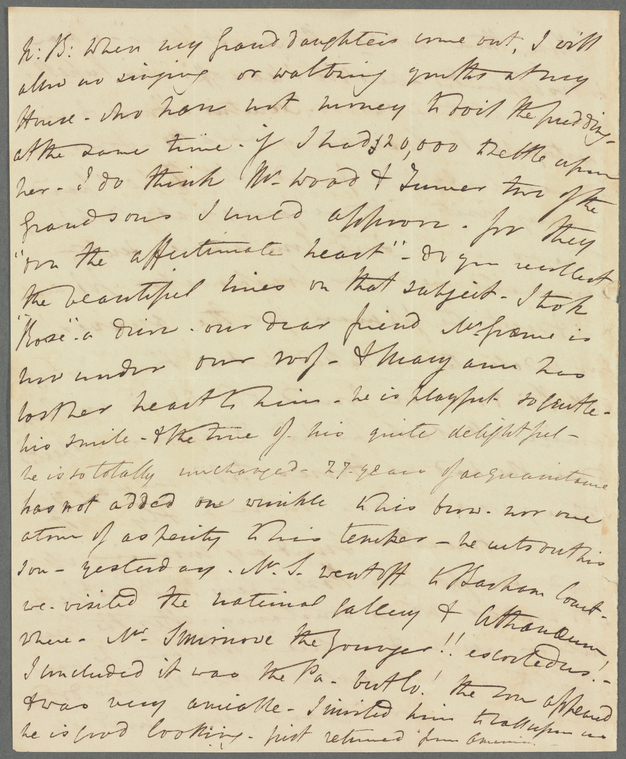 N: B: When my Grand daughters come out, I will
allow no singing or waltzing youths at my
House - who have not money to boil the pudding -
at the same time - if I had $20,000 to settle upon
her - I do think Mr. Wood & Turner two of the
grandsons I would approve - for they
"own the affectionate heart" - do you recollect
the beautiful lines on that subject - I took
"Rose" a dose - our dear friend Mr. Graeme is
now under our roof - & Mary ann has
lost her heart to him - he is playful so gentle -
his smile - & the tone of his quite delightful -
he is so totally unchanged - 27 years of acquaintance
has not added one wrinkle to his brow - nor one
atom of asperity to his temper - he cuts out his
son - yesterday - Mr. S. went off to Court -
we visited the national gallery & Athenaeum!
where - Mr. Smirnove the Younger!! escorted us! -
I concluded it was the Pa - but lo! the son appeared
& was very amiable - I invited him to call upon us
he is good looking - just returned from